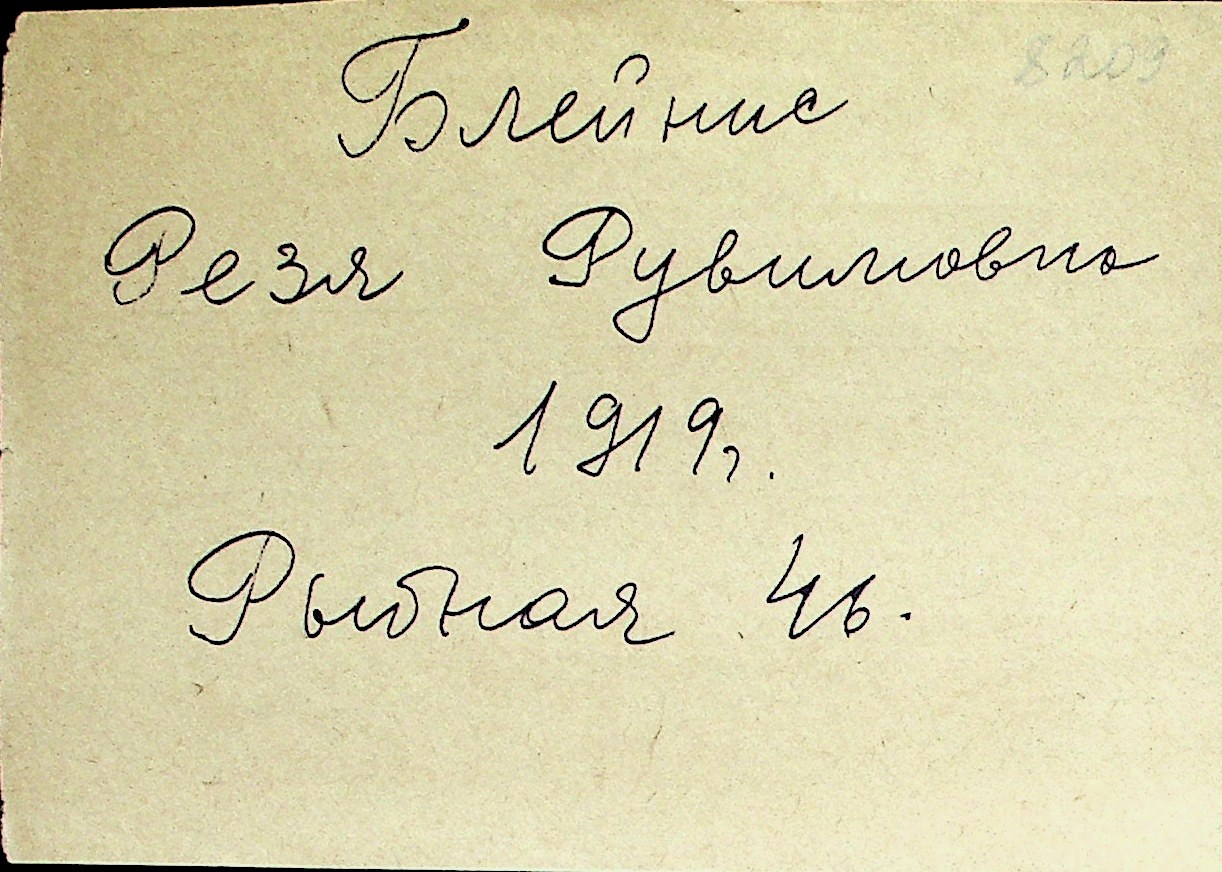 8209
Блейнис
Резя Рувимовна
1919 г.
Рыбная 46.